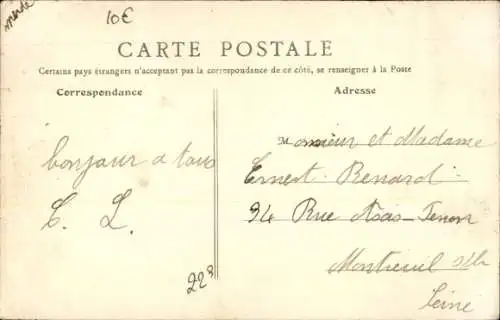 10€
CARTE POSTALE
Certains pays étrangers n'acceptant pas la correspondance de ce côté, se renseigner à la Poste
Correspondance
Adresse
bonjour a tous
L.
Monsieur et Madame
Ernest Renard
94 Rue
Montreuil s/s
Seine
223